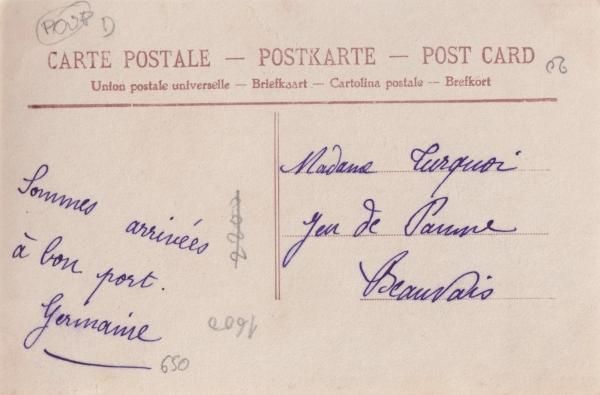 POUP D
CARTE POSTALE — POSTKARTE — POST CARD
Union postale universelle — Briefkaart — Cartolina postale — Brefkort
Sommes
arrivées
à bon port.
Germaine
650
Madame Turquoi
Jeu de Paume
Beauvais